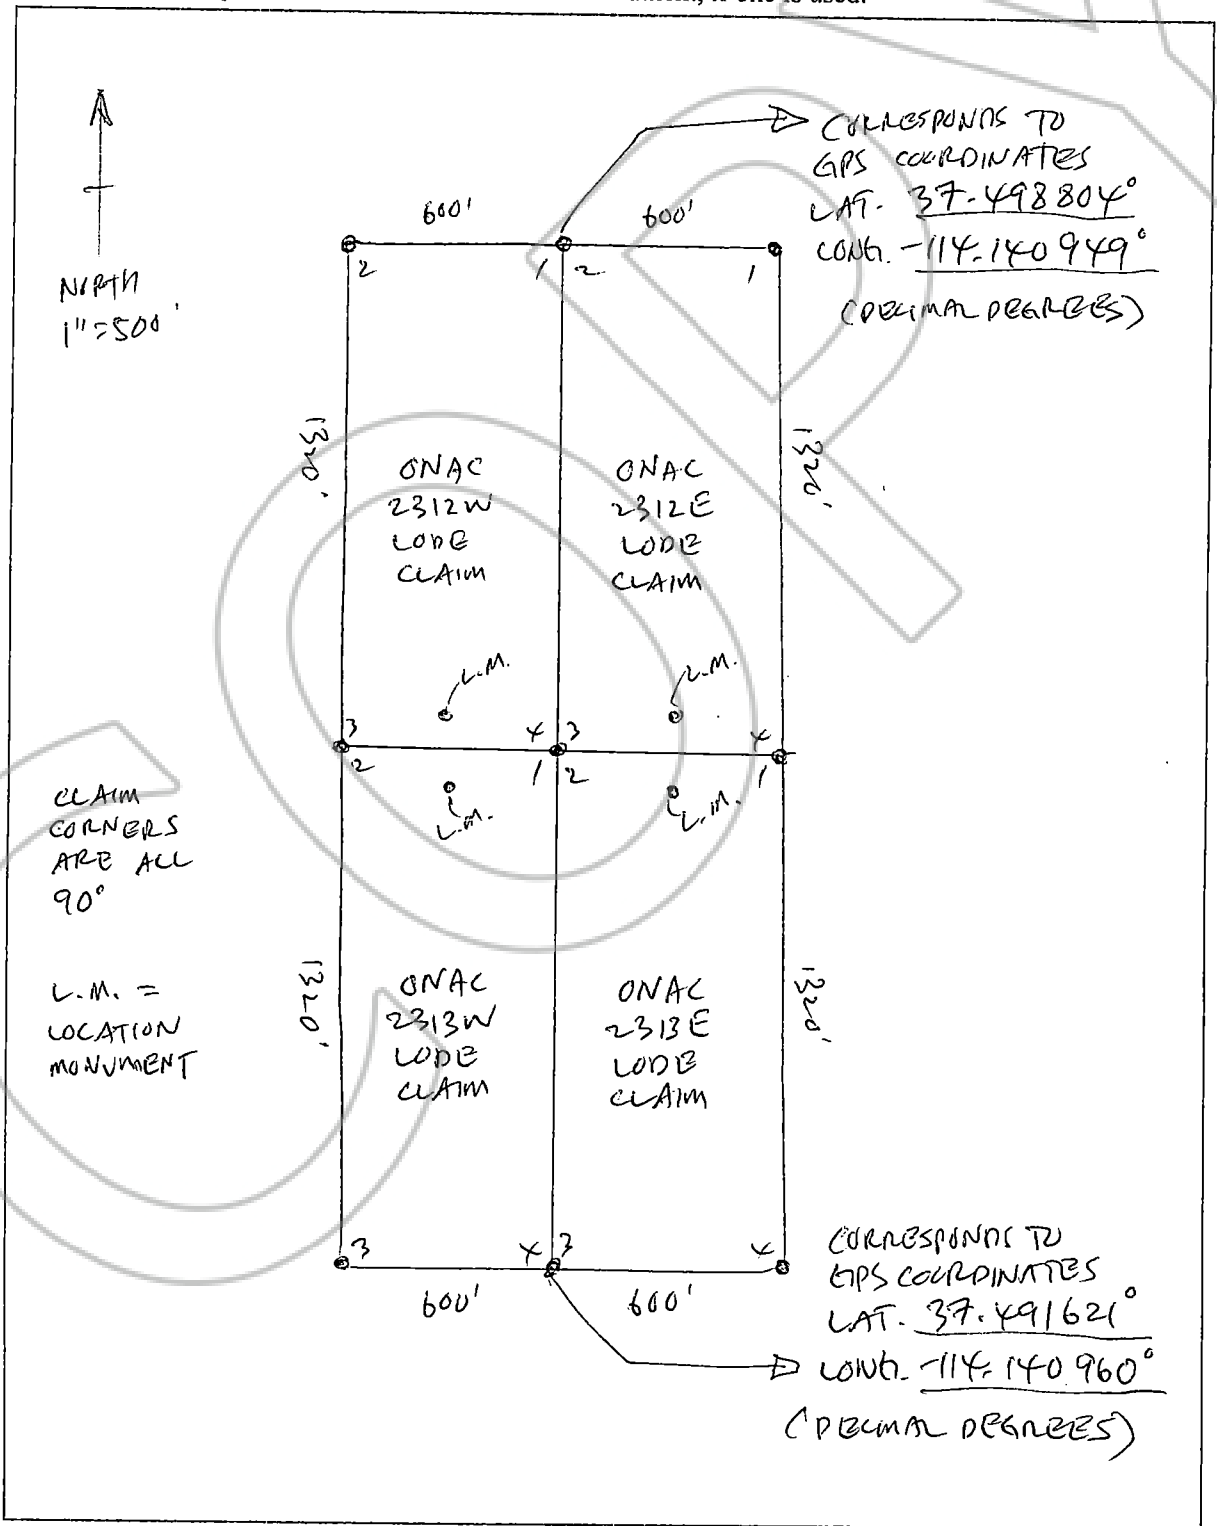 is used.
CORRESPONDS TO
GPS COORDINATES
LAT. 37.498804°
LONG. -114.140949°
(DECIMAL DEGREES)
NORTH
1"=500'
600'
600'
2
1
2
1
1320'
1320'
ONAC
2312W
LODE
CLAIM
ONAC
2312E
LODE
CLAIM
L.M.
L.M.
3
4
3
4
2
1
2
1
L.M.
L.M.
CLAIM
CORNERS
ARE ALL
90°
L.M. =
LOCATION
MONUMENT
1320'
1320'
ONAC
2313W
LODE
CLAIM
ONAC
2313E
LODE
CLAIM
3
4
3
4
600'
600'
CORRESPONDS TO
GPS COORDINATES
LAT. 37.491621°
LONG. -114.140960°
(DECIMAL DEGREES)
COPY